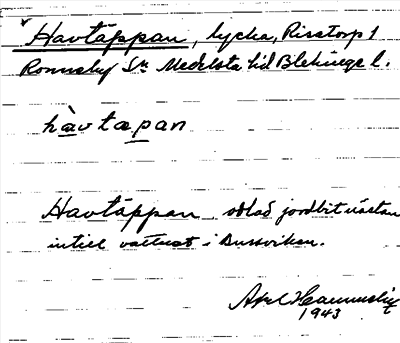 Havtäppan, lycka, Risatorp 1
Ronneby Sn Medelsta hd Blekinge l.
hàvtapan
Havtäppan odlad jordbit nästan
intill vattnet i Bussviken.
Axel
1943